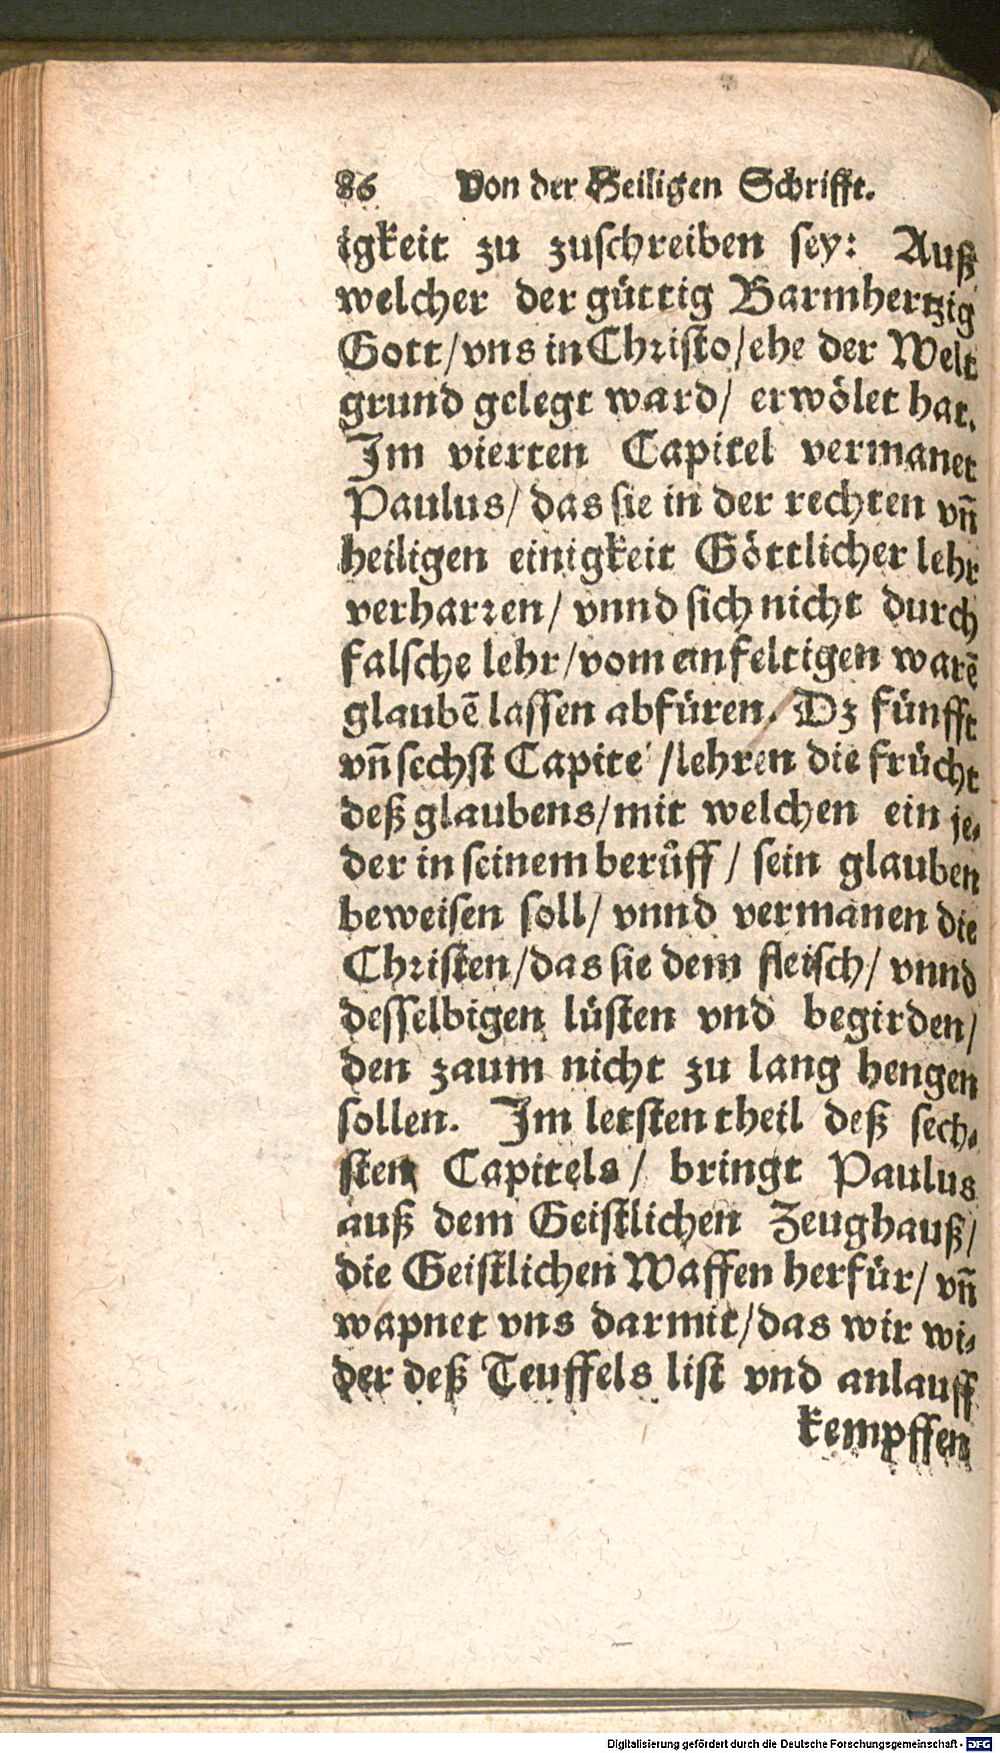 86 Von der Heiligen Schrifft.
igkeit zu zuschreiben sey: Auß
welcher der güttig Barmhertzig
Gott/vns in Christo/ehe der Welt
grund gelegt ward/ erwölet hat.
Im vierten Capitel vermanet
Paulus/ das sie in der rechten vñ
heiligen einigkeit Göttlicher lehr
verharꝛen/ vnnd sich nicht durch
falsche lehr/vom einfeltigen warē
glaubē lassen abfüren. Dz fünfft
vñ sechst Capite /lehren die frücht
deß glaubens/mit welchen ein je-
der in seinem berůff/ sein glauben
beweisen soll/ vnnd vermanen die
Christen/das sie dem fleisch/ vnnd
desselbigen lüsten vnd begirden/
den zaum nicht zu lang hengen
sollen. Im letsten theil deß sech-
sten Capitels/ bringt Paulus
auß dem Geistlichen Zeughauß/
die Geistlichen Waffen herfür/ vñ
wapnet vns darmit/das wir wi-
der deß Teuffels list vnd anlauff
kempffen
Digitalisierung gefördert durch die Deutsche Forschungsgemeinschaft - DFG